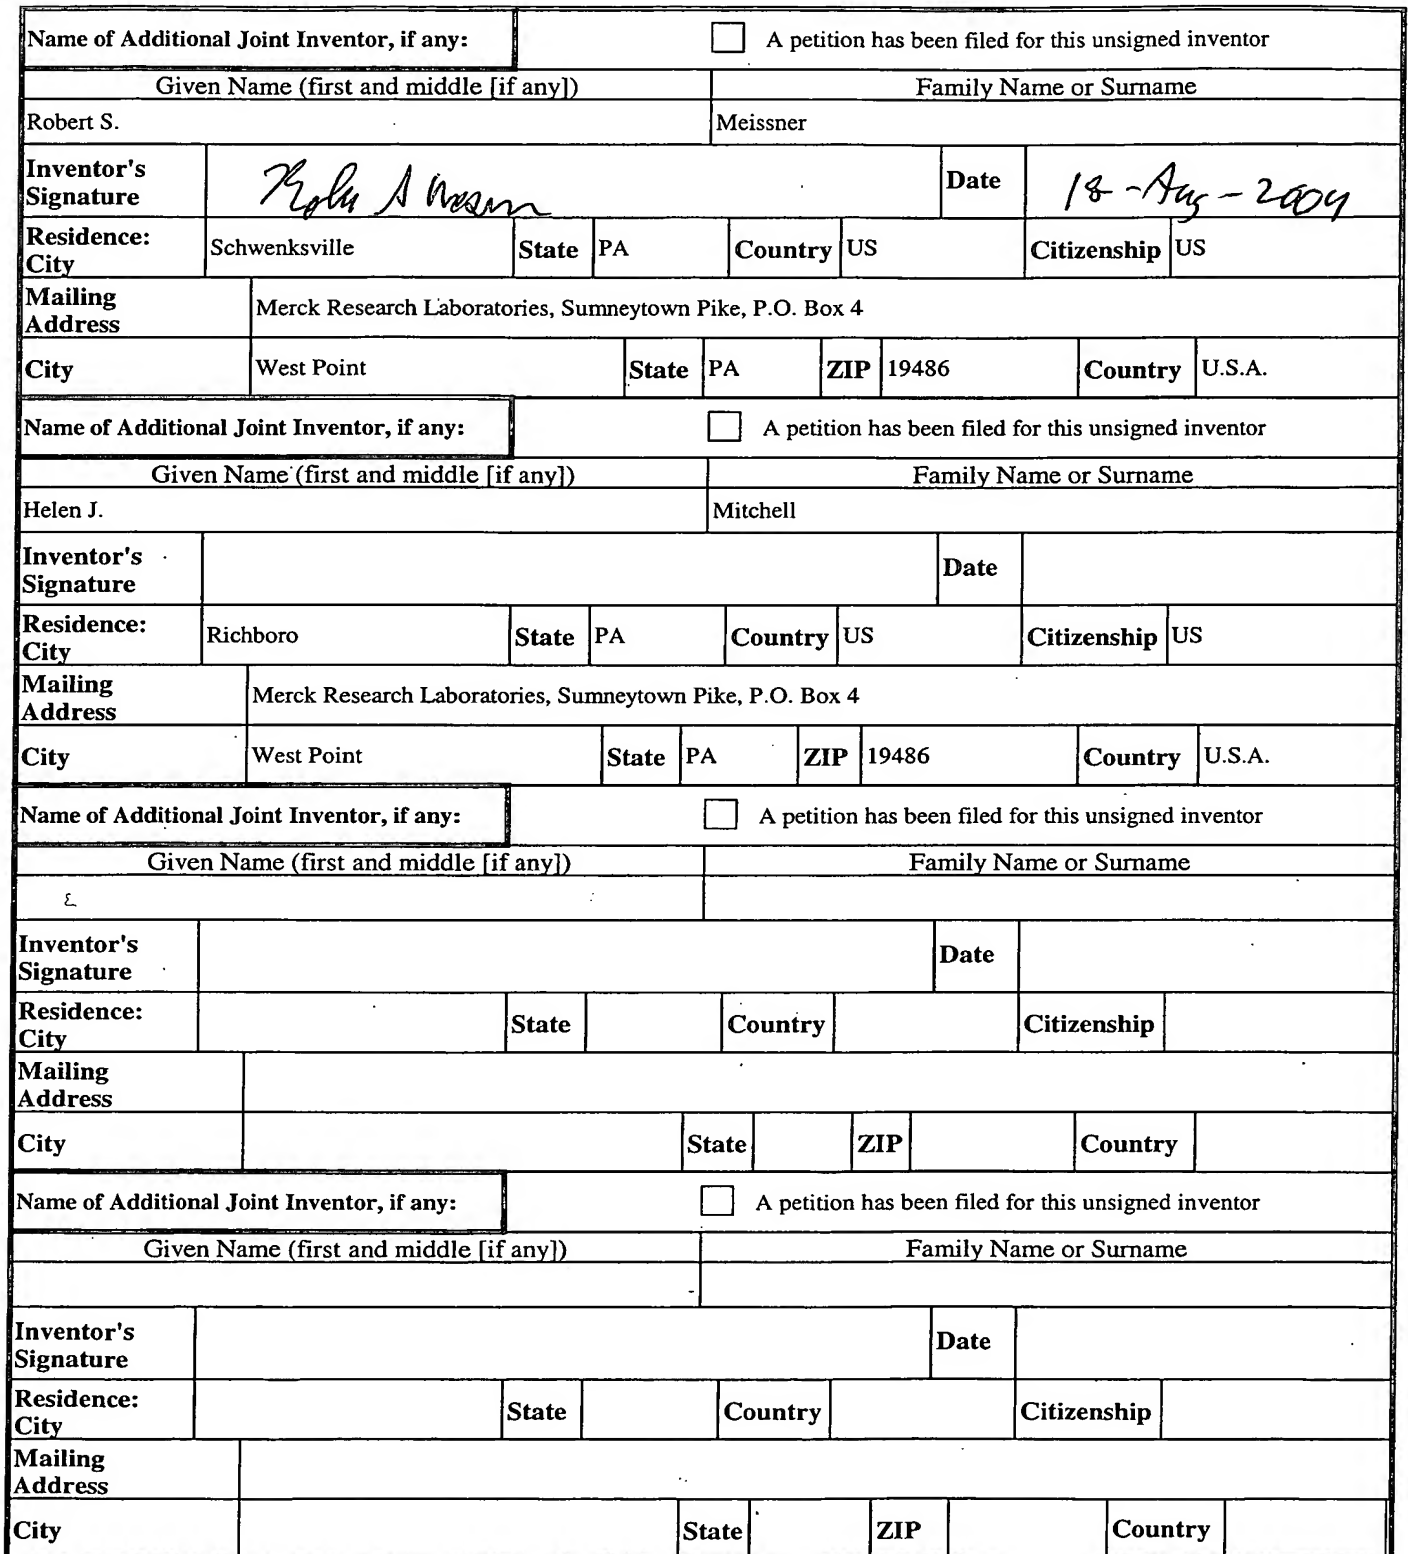 Name of Additional Joint Inventor, if any: A petition has been filed for this unsigned inventor
Given Name (first and middle [if any]) Family Name or Surname
Robert S. Meissner
Inventor's Signature Date 18-Aug-2004
Residence: City Schwenksville State PA Country US Citizenship US
Mailing Address Merck Research Laboratories, Sumneytown Pike, P.O. Box 4
City West Point State PA ZIP 19486 Country U.S.A.
Name of Additional Joint Inventor, if any: A petition has been filed for this unsigned inventor
Given Name (first and middle [if any]) Family Name or Surname
Helen J. Mitchell
Inventor's Signature Date
Residence: City Richboro State PA Country US Citizenship US
Mailing Address Merck Research Laboratories, Sumneytown Pike, P.O. Box 4
City West Point State PA ZIP 19486 Country U.S.A.
Name of Additional Joint Inventor, if any: A petition has been filed for this unsigned inventor
Given Name (first and middle [if any]) Family Name or Surname
Inventor's Signature Date
Residence: City State Country Citizenship
Mailing Address
City State ZIP Country
Name of Additional Joint Inventor, if any: A petition has been filed for this unsigned inventor
Given Name (first and middle [if any]) Family Name or Surname
Inventor's Signature Date
Residence: City State Country Citizenship
Mailing Address
City State ZIP Country